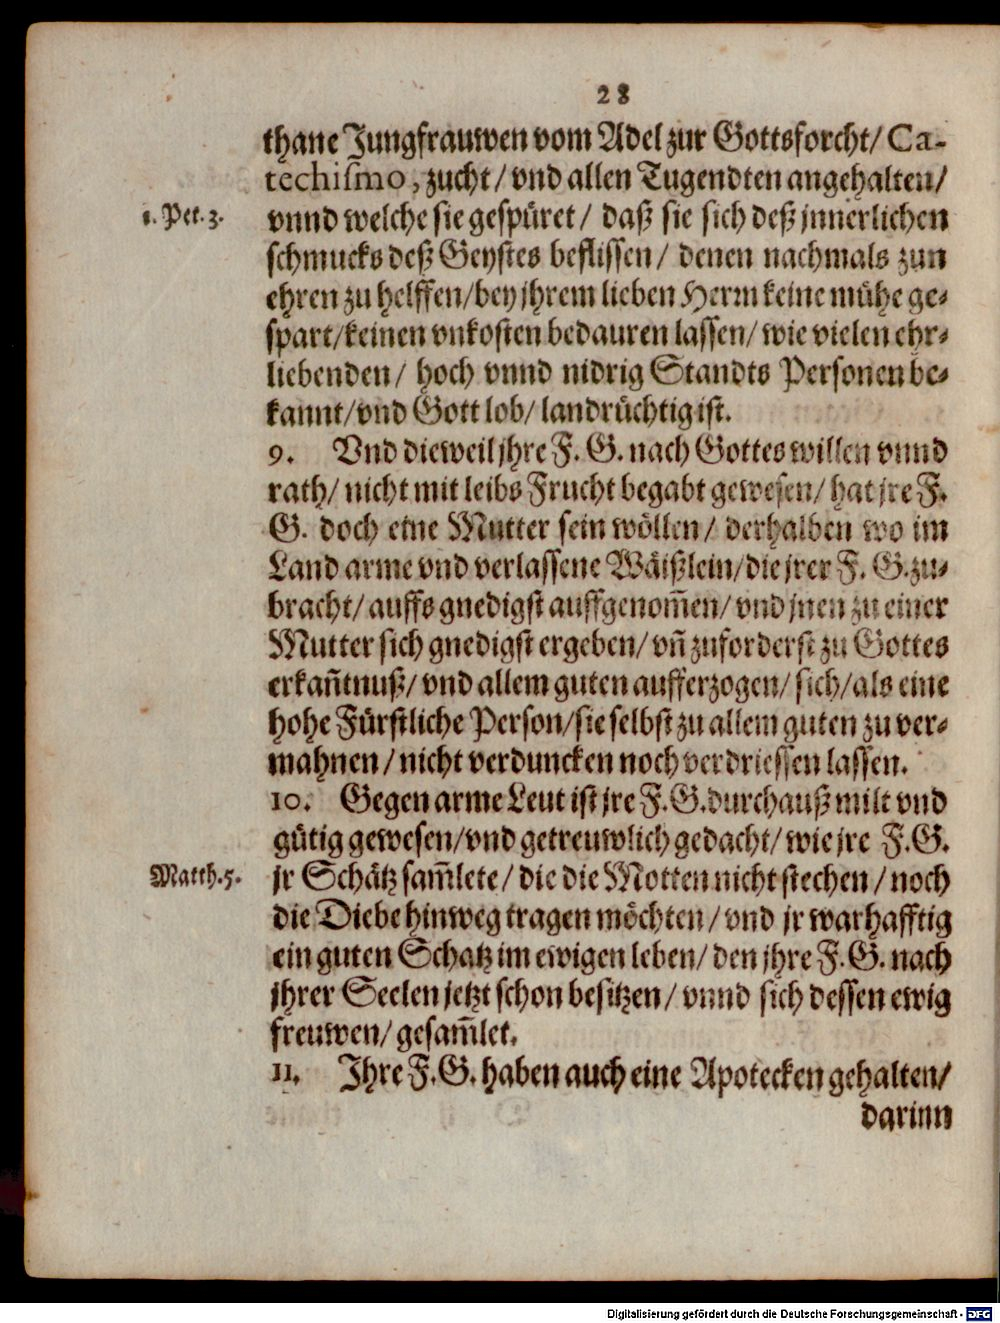 28
thane Jungfrauwen vom Adel zur Gottsforcht/ Ca-
techiſmo, zucht/ vnd allen Tugendten angehalten/
1. Pet. 3.
vnnd welche sie gespüret/ daß sie sich deß jnnerlichen
schmucks deß Geystes beflissen/ denen nachmals zun
ehren zu helffen/ bey jhrem lieben Herrn keine mühe ge-
spart/ keinen vnkosten bedauren lassen/ wie vielen ehr-
liebenden/ hoch vnnd nidrig Standts Personen be-
kannt/ vnd Gott lob/ landrüchtig ist.
9. Vnd dieweil jhre F. G. nach Gottes willen vnnd
rath/ nicht mit leibs Frucht begabt gewesen/ hat jre F.
G. doch eine Mutter sein wöllen/ derhalben wo im
Land arme vnd verlassene Wäißlein/ die jrer F. G. zu-
bracht/ auffs gnedigst auffgenom̃en/ vnd jnen zu einer
Mutter sich gnedigst ergeben/ vñ zuforderst zu Gottes
erkañtnuß/ vnd allem guten aufferzogen/ sich/ als eine
hohe Fürstliche Person/ sie selbst zu allem guten zu ver-
mahnen/ nicht verduncken noch verdriessen lassen.
10. Gegen arme Leut ist jre F. G. durchauß milt vnd
gütig gewesen/ vnd getreuwlich gedacht/ wie jre F. G.
Matth. 5.
jr Schätz sam̃lete/ die die Motten nicht stechen/ noch
die Diebe hinweg tragen möchten/ vnd jr warhafftig
ein guten Schatz im ewigen leben/ den jhre F. G. nach
jhrer Seelen jetzt schon besitzen/ vnnd sich dessen ewig
freuwen/ gesam̃let.
11. Ihre F. G. haben auch eine Apotecken gehalten/
darinn
Digitalisierung gefördert durch die Deutsche Forschungsgemeinschaft - DFG